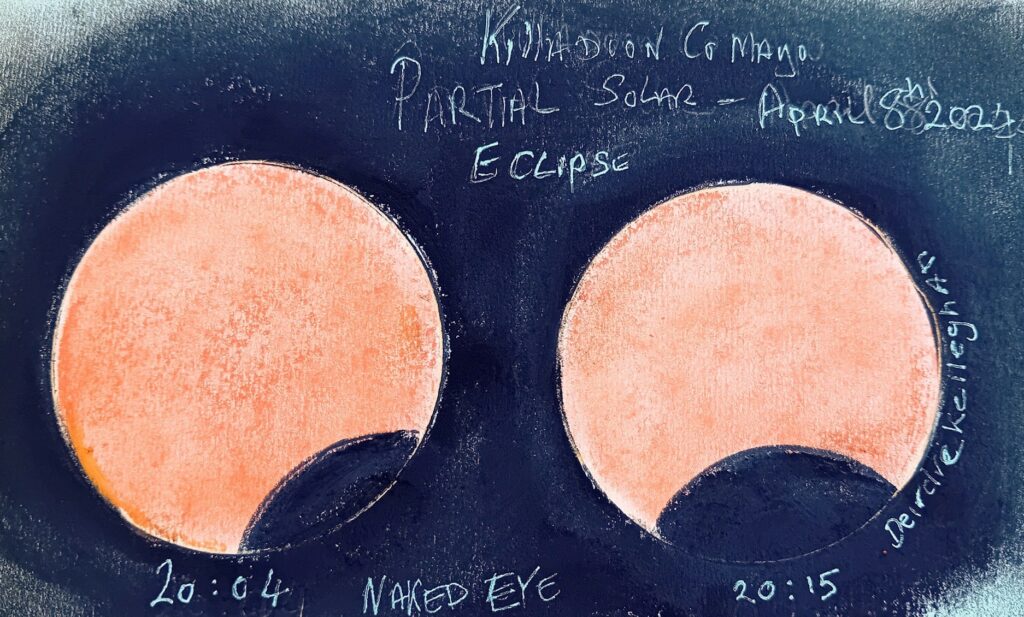 Killadoon Co Mayo
Partial Solar - April 8th 2024
Eclipse
Deirdre Kelleghan
20:04
Naked Eye
20:15